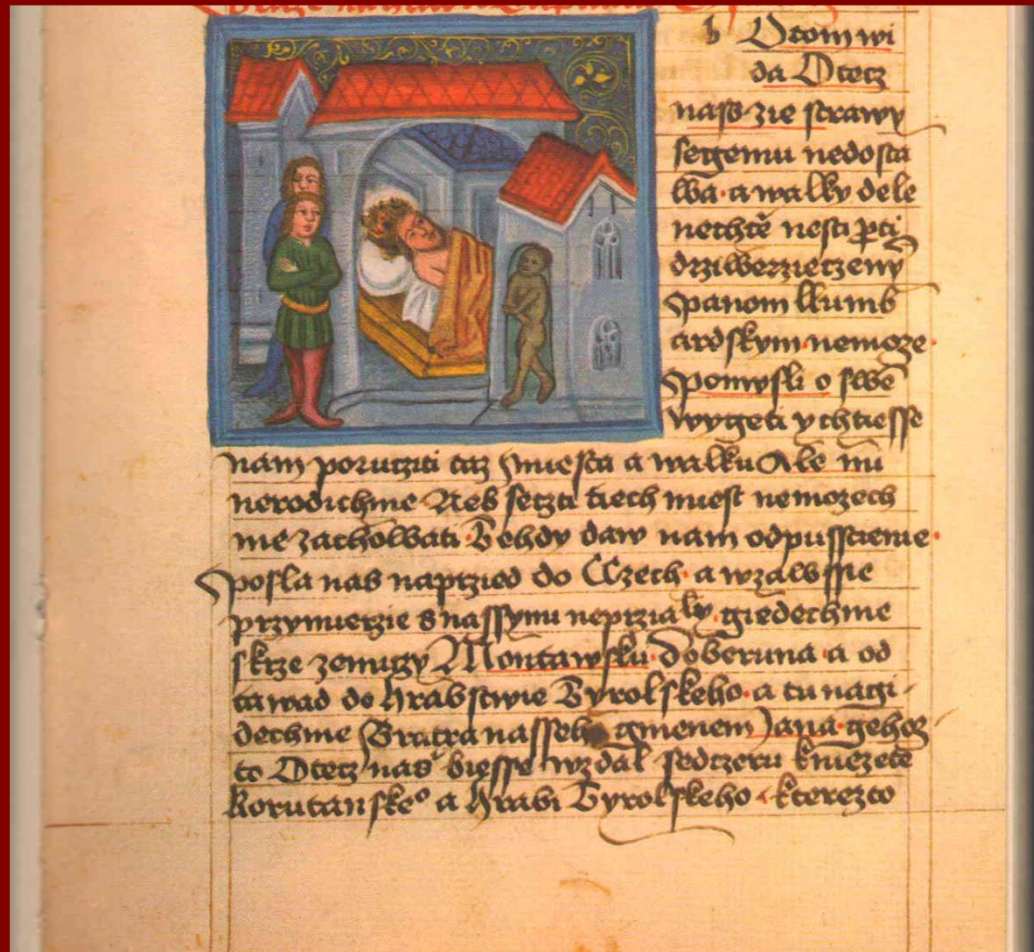 Otom wi
da Otecz
nass zie strawy
segemu nedosta
wa a walky dele
nechtě nesti pti
drziwerzieczeny
panom llumb
ardskym nemoze
Spomysli o swe
wygeti y chtiesse
nam porucziti taz miesta a walku Ale mi
nerodichme Neb seczti tiech miest nemozech
me zachowati Tehdy daw nam odpusstienie
Posla nas naprzied do Czech a wzawssie
przymierzie s nassymi neprzately giedechme
skrze zemiczy Montawsku doberuna a od
tawad do hrabstwie Tyrolskeho a tu nagi
dechme Bratra nasseho gmenem Jana gehoz
to Otecz nas biesse wzdal sedczeru kniezete
korutanskeo a hrabi Tyrolskeho kterezto